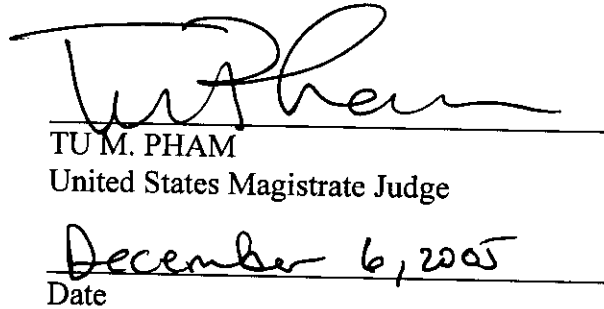 Tu M Pham
TU M. PHAM
United States Magistrate Judge
December 6, 2005
Date